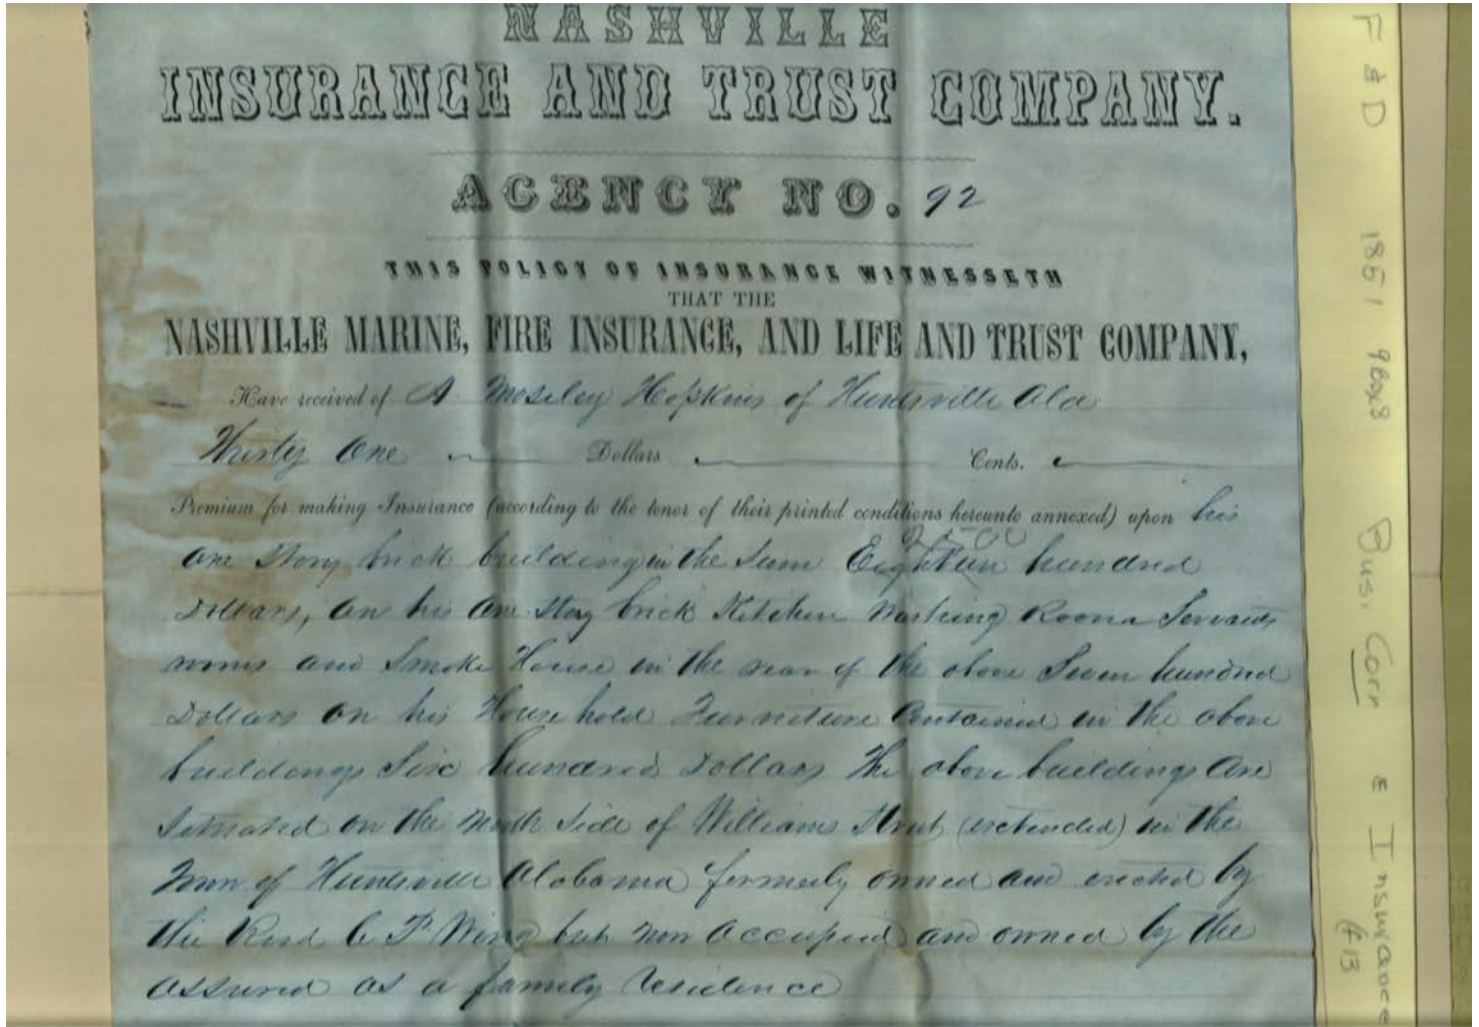 NASHVILLE
INSURANCE AND TRUST COMPANY.
AGENCY NO. 92
THIS POLICY OF INSURANCE WITNESSETH
THAT THE
NASHVILLE MARINE, FIRE INSURANCE, AND LIFE AND TRUST COMPANY,
Have received of A Moseley Hopkins of Huntsville Ala
Thirty One Dollars Cents.
Premium for making Insurance (according to the tenor of their printed conditions hereunto annexed) upon his
One Story brick building in the Sum Eighteen hundred
Dollars, On his One Story brick Kitchen Washing Room Servants
rooms and Smoke House in the rear of the above Seven hundred
Dollars on his House hold Furniture Contained in the above
buildings Six hundred Dollars The above buildings Are
Situated on the North Side of Williams Street (extended) in the
Town of Huntsville Alabama formerly owned and erected by
the Revd C P Wing but now Occupied and owned by the
assured as a family residence
F & D 1851 9Box8 Bus. Corr & Insurance
#13